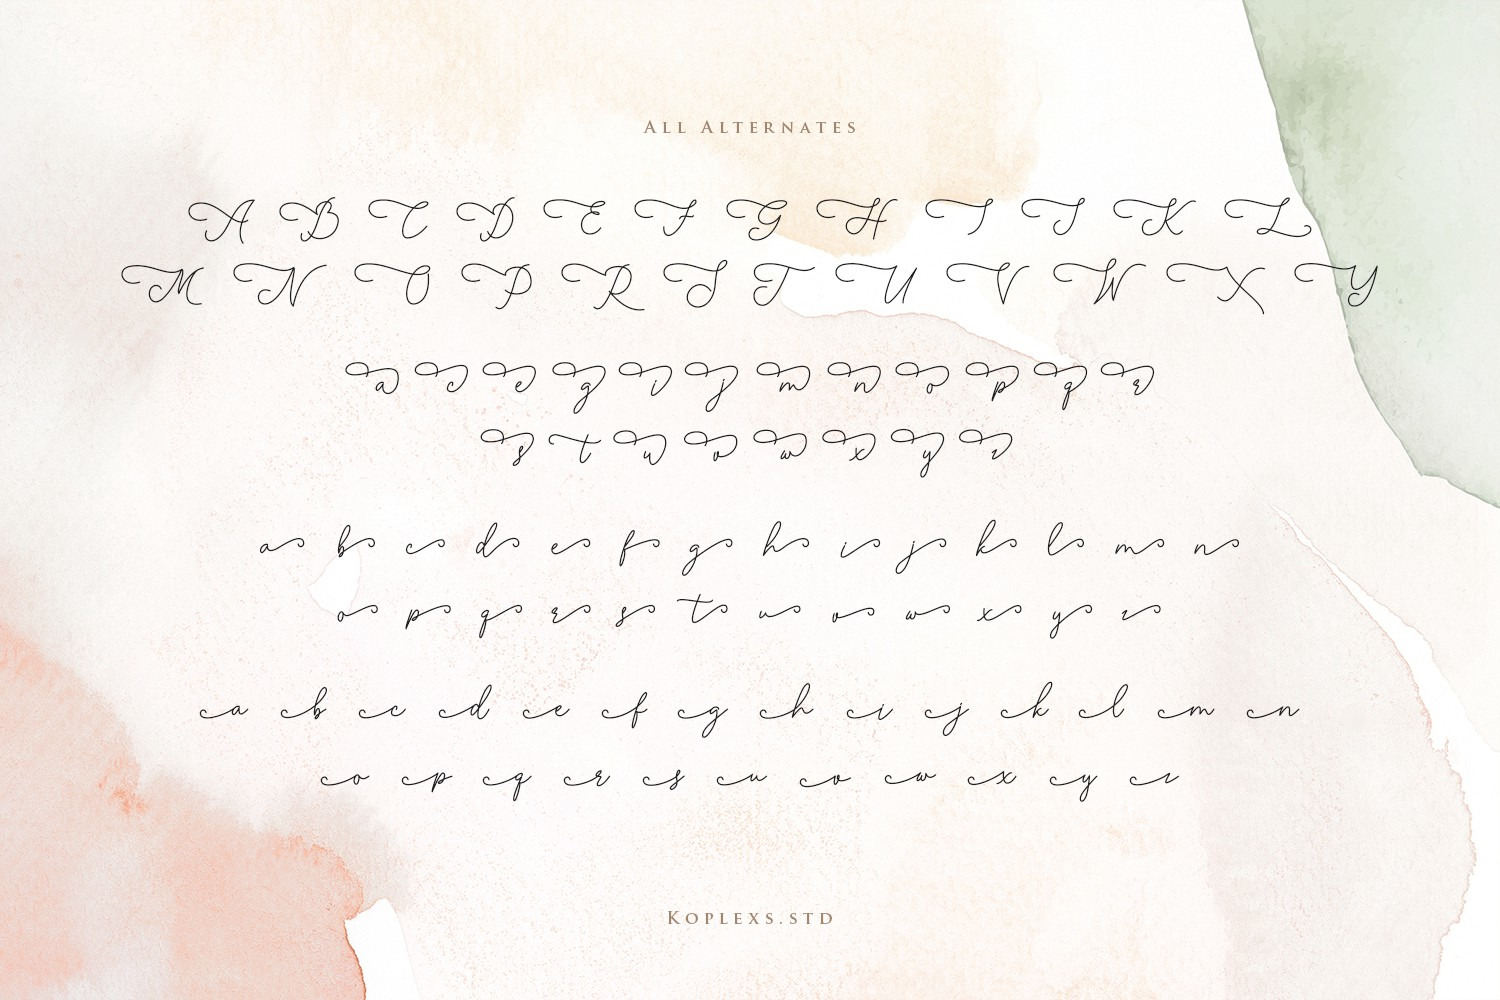 All Alternates
A B C D E F G H I J K L
M N O P R S T U V W X Y
a c e g i j m n o p q r
s t u v w x y z
a b c d e f g h i j k l m n
o p q r s t u v w x y z
a b c d e f g h i j k l m n
o p q r s u v w x y z
Koplexs.std